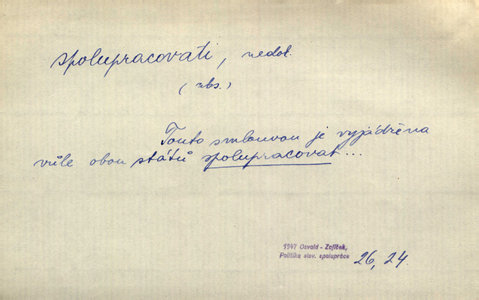 spolupracovati, nedok.
(abs.)
Touto smlouvou je vyjádřena
vůle obou států spolupracovat...
1947 Osvald - Zajíček,
Politika slov. spolupráce 26, 24.